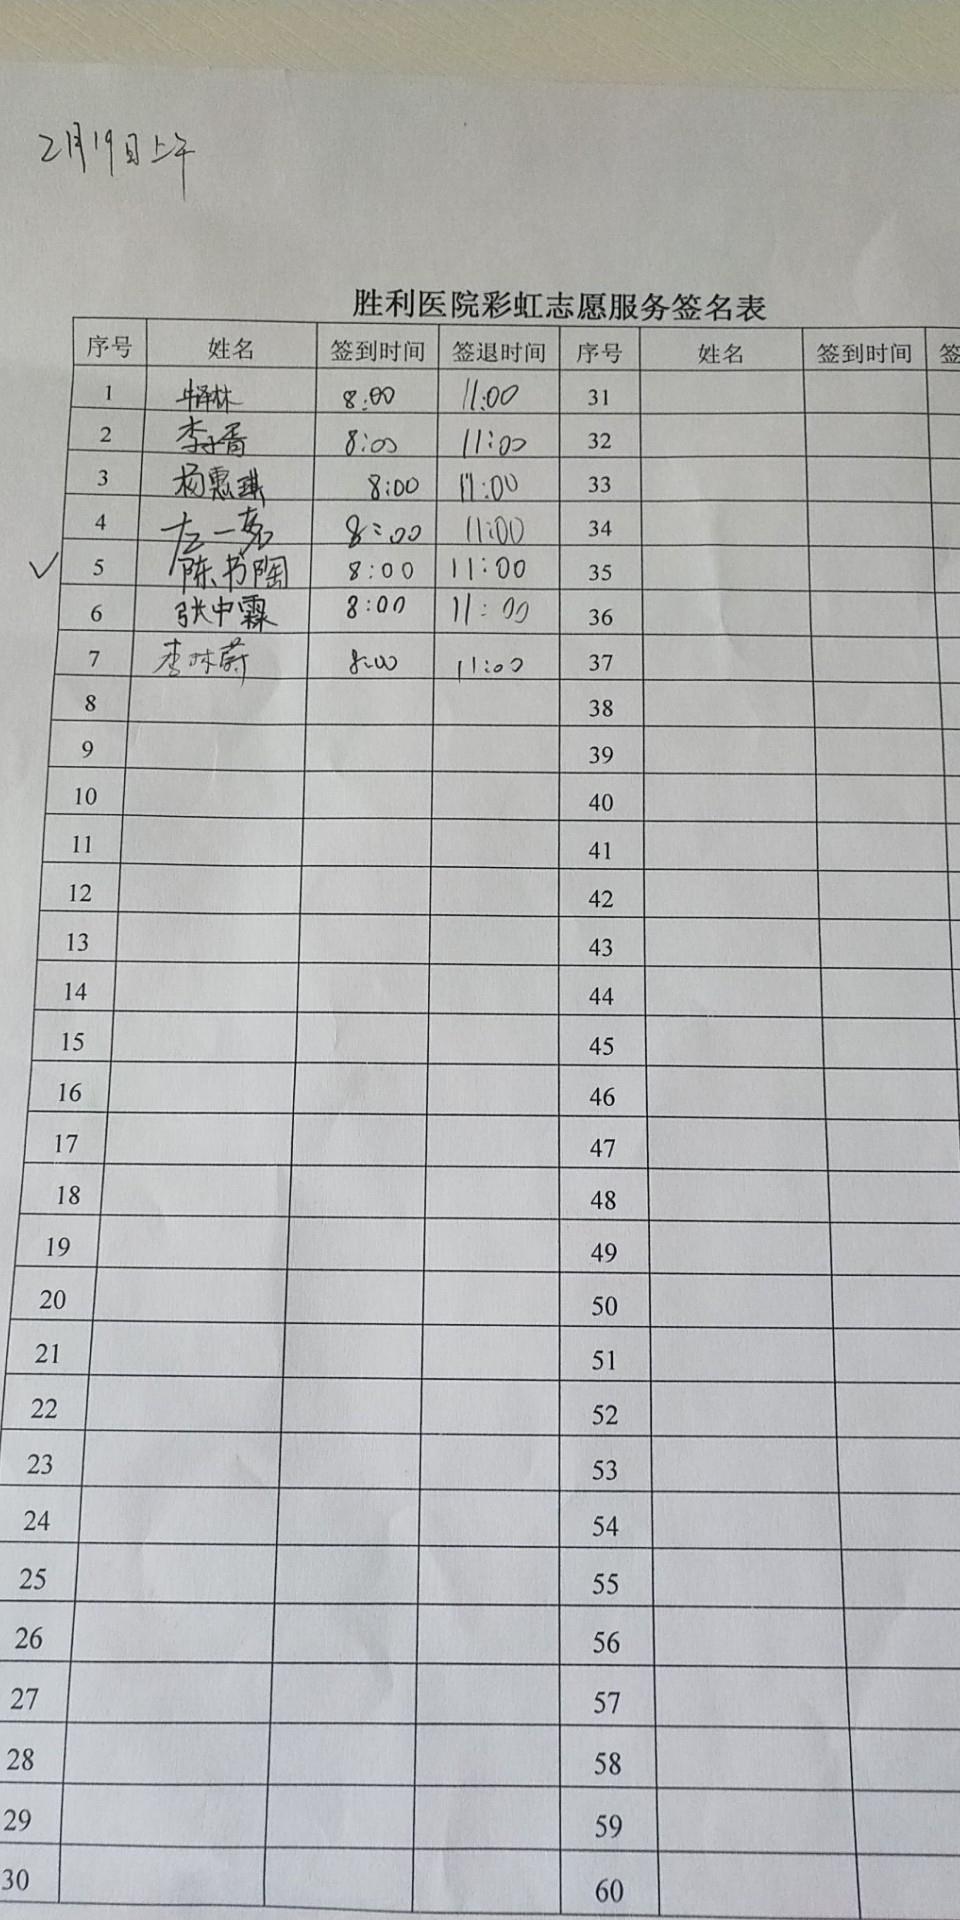 2月19日上午
胜利医院彩虹志愿服务签名表
序号 姓名 签到时间 签退时间 序号 姓名 签到时间 签
1 牛泽林 8:00 11:00 31
2 李子胥 8:00 11:00 32
3 杨惠琪 8:00 11:00 33
4 左一茗 8:00 11:00 34
✓ 5 陈书陶 8:00 11:00 35
6 张中霖 8:00 11:00 36
7 李林蔚 8:00 11:00 37
8 38
9 39
10 40
11 41
12 42
13 43
14 44
15 45
16 46
17 47
18 48
19 49
20 50
21 51
22 52
23 53
24 54
25 55
26 56
27 57
28 58
29 59
30 60